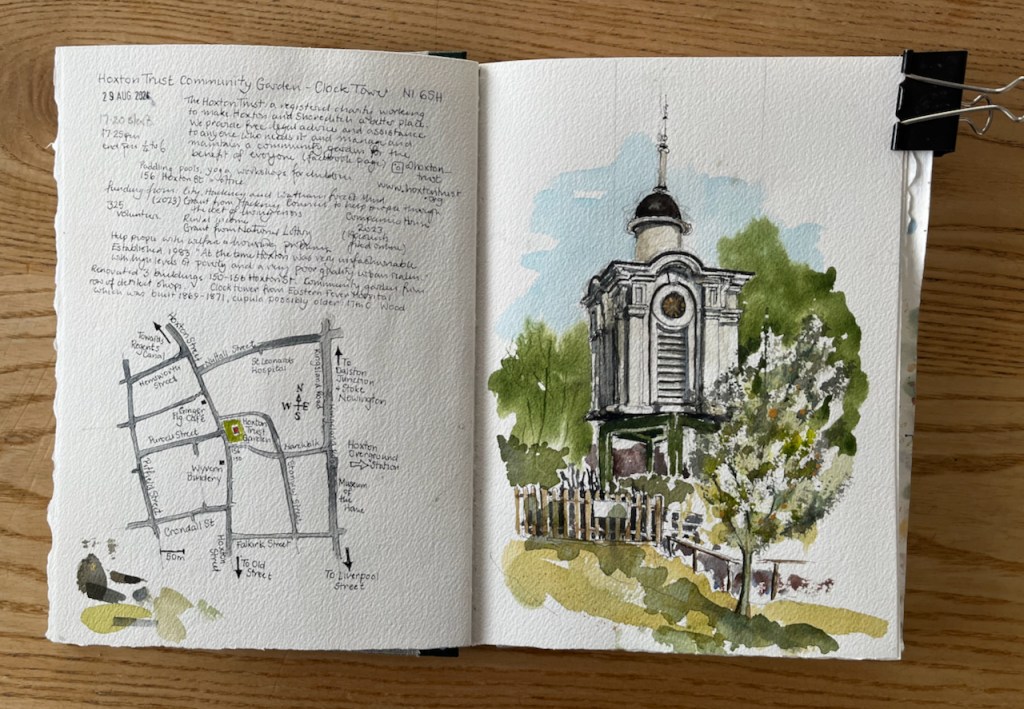 Hoxton Trust Community Garden - Clock Tower N1 6SH
29 AUG 2024
The Hoxton Trust, a registered charity working
to make Hoxton and Shoreditch a better place.
17:20
We provide free legal advice and assistance
17:25pm
to anyone who needs it and manage and
maintain a community garden for the
benefit of everyone (facebook page) @hoxton_
trust
Paddling pools, yoga, workshops for children
156 Hoxton St
www.hoxtontrust
.org
funding from: City, Hackney and Waltham Forest Mind
(2023) Grant from Hackney Council to help people through
the cost of living crisis
325
volunteer
Rental income
Grant from National Lottery
Companies House
2023
Help people with welfare & housing problems
Established 1983. "At the time Hoxton was very unfashionable
with high levels of poverty and a very poor quality urban realm."
Renovated 3 buildings 150-156 Hoxton St. Community garden from
row of derelict shops. Clock tower from Eastern Fever Hospital
which was built 1869-1871, cupola possibly older. 17th C Wood
Towards
Regents
Canal
Hoxton Street
Nuttall Street
St Leonards
Hospital
Kingsland Road
To
Dalston
Junction
+ Stoke
Newington
Hemsworth
Street
N
W E
S
Ginger
Pig Café
Purcell Street
Hoxton
Trust
Garden
Hoxton
Overground
Station
Wyvern
Bindery
Pitfield Street
Stanway Street
Museum
of the
Home
Crondall St
Hoxton
Street
Falkirk Street
50m
To Old
Street
To Liverpool
Street